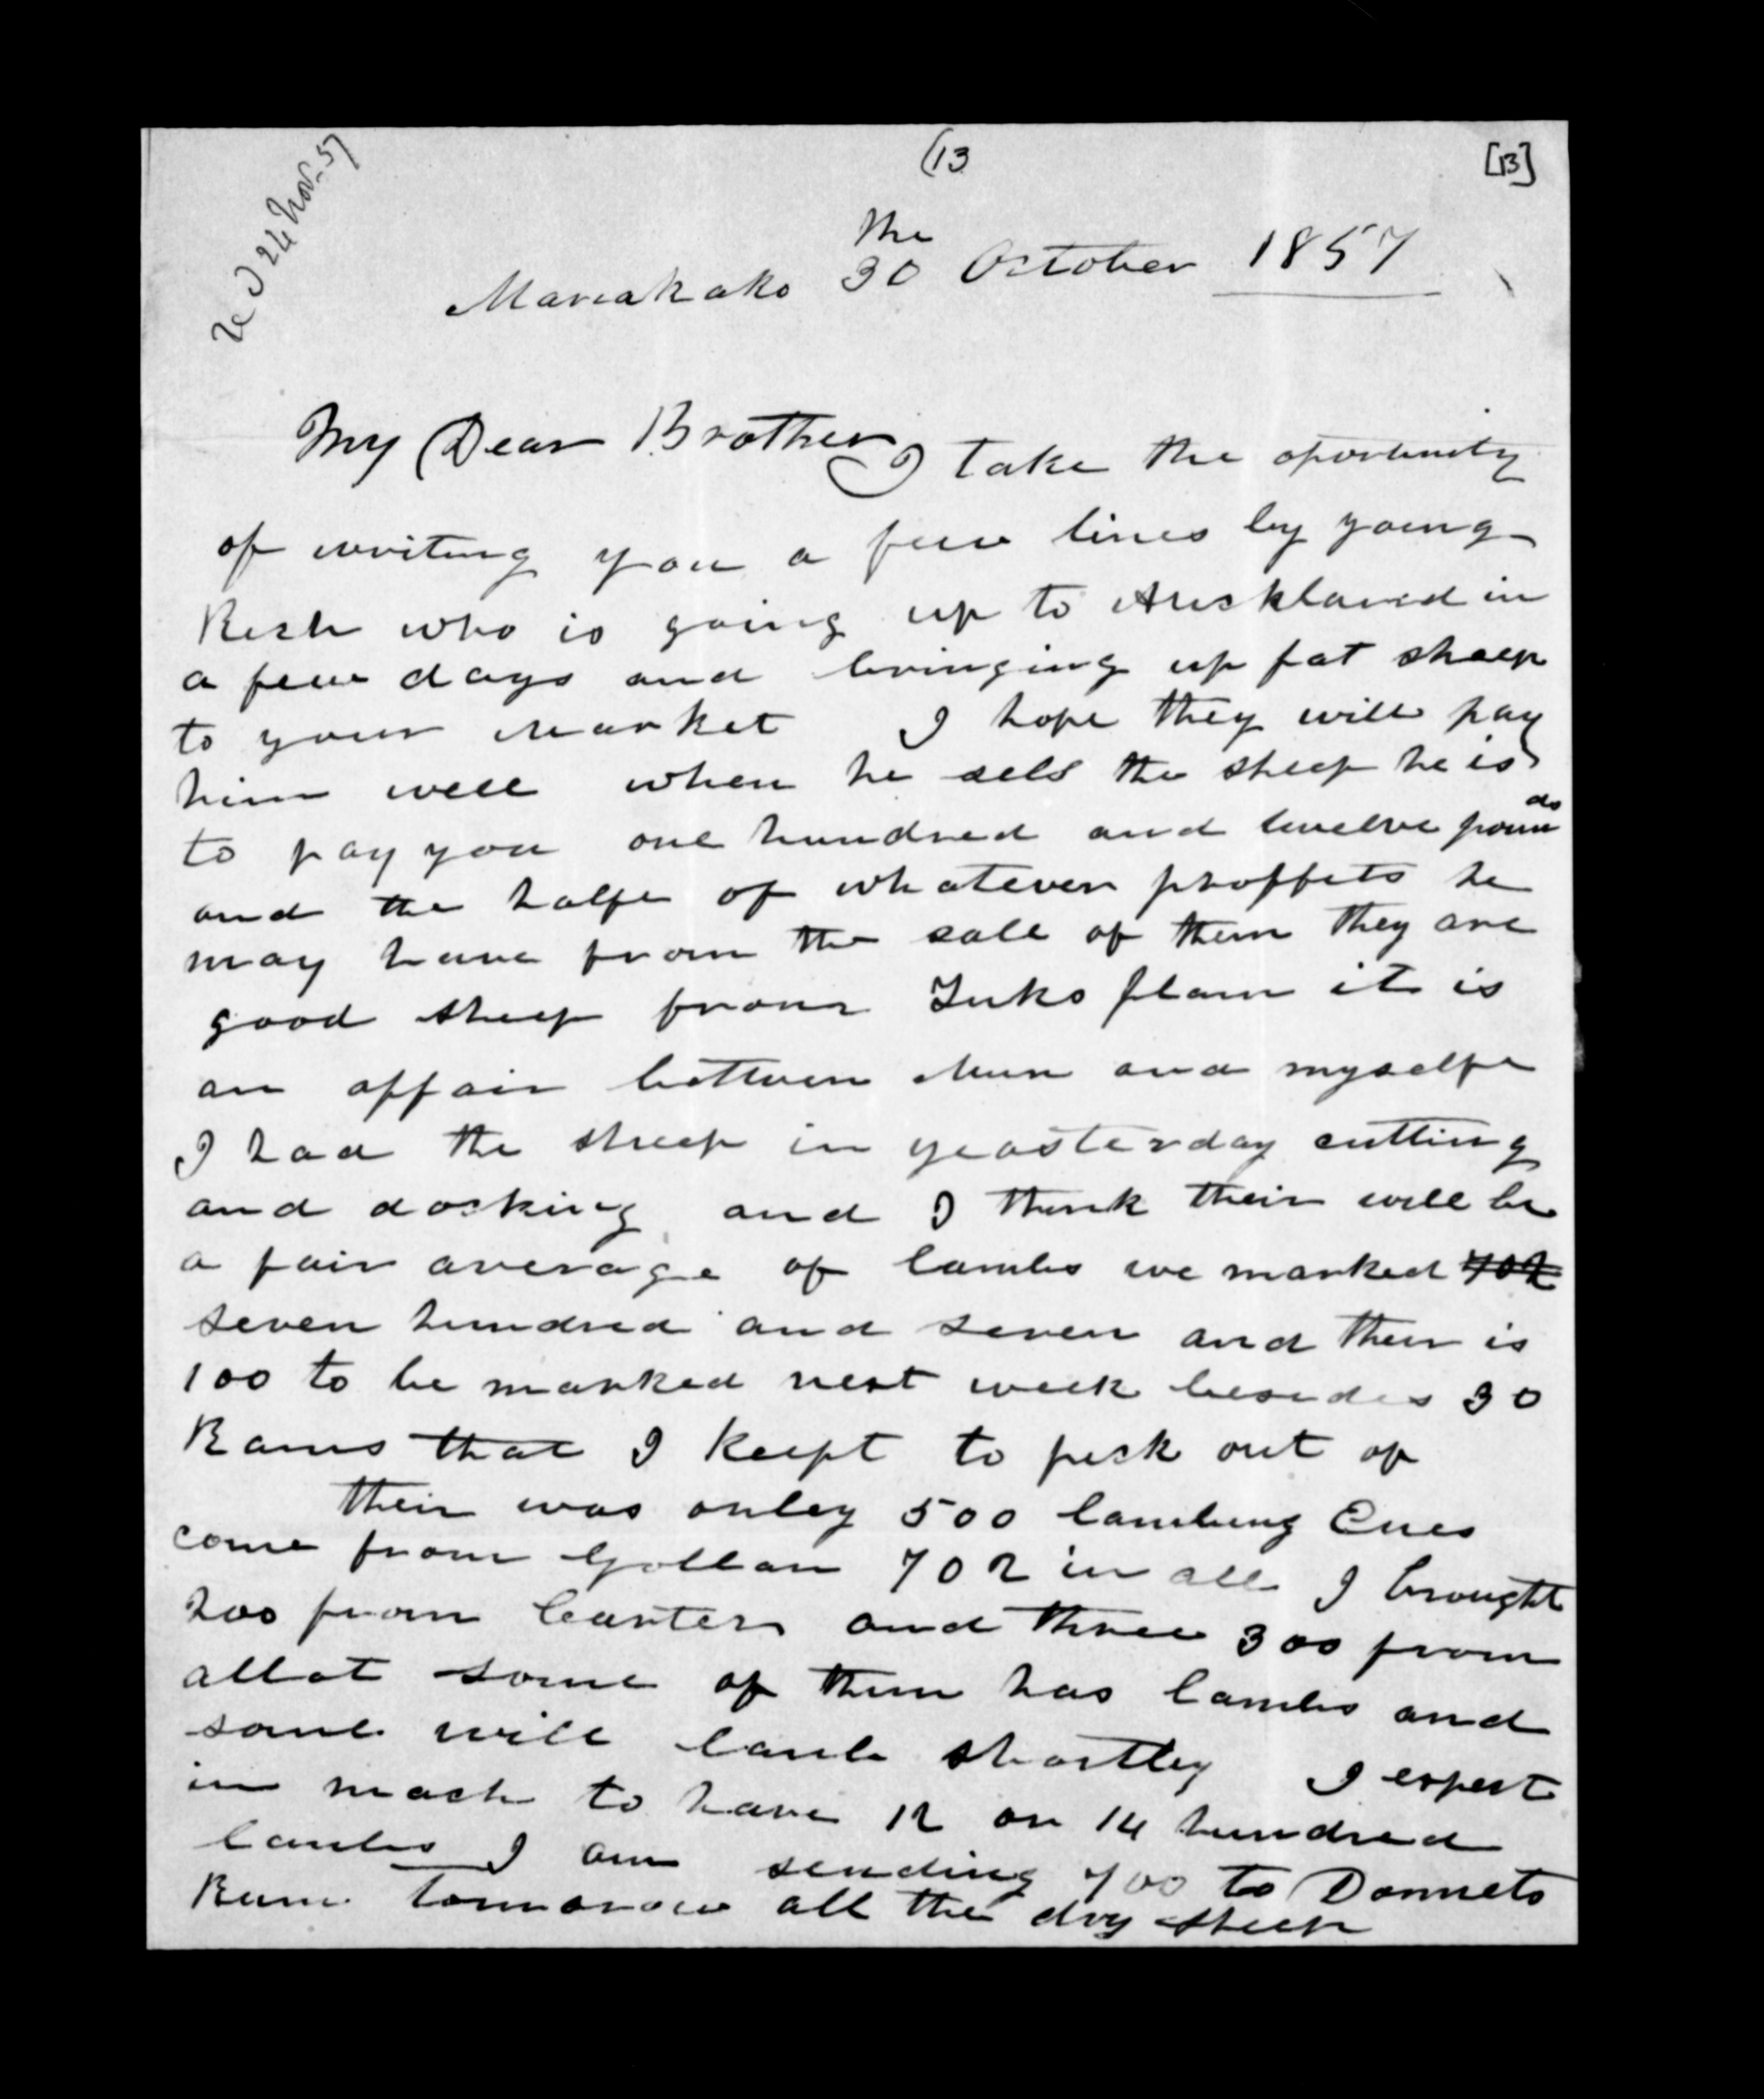 (13
[13]
Recd 24 Nov. 57
The
Mareakako 30 October 1857
My Dear Brother I take the oportunity
of writing you a few lines by young
Rich who is going up to Auckland in
a few days and bringing up fat sheep
to your market I hope they will pay
him well when he sels the sheep he is
to pay you one hundred and twelve pounds
and the halfe of whatever proffets he
may have from the sale of them they are
good sheep from plain it is
an affair bettwen and myselfe
I had the sheep in yeasterday cutting
and docking and I think their will be
a fair average of lambs we marked 702
seven hundred and seven and their is
100 to be marked next week besides 30
Rams that I keept to pick out of
their was onley 500 lambing Ewes
come from Gollan 702 in all I brought
200 from Carters and three 300 from
allot some of them has lambs and
some will lamb shortley I expect
in mach to have 12 or 14 hundred
lambs I am sending 700 to Donnets
Run tomorow all the dry sheep